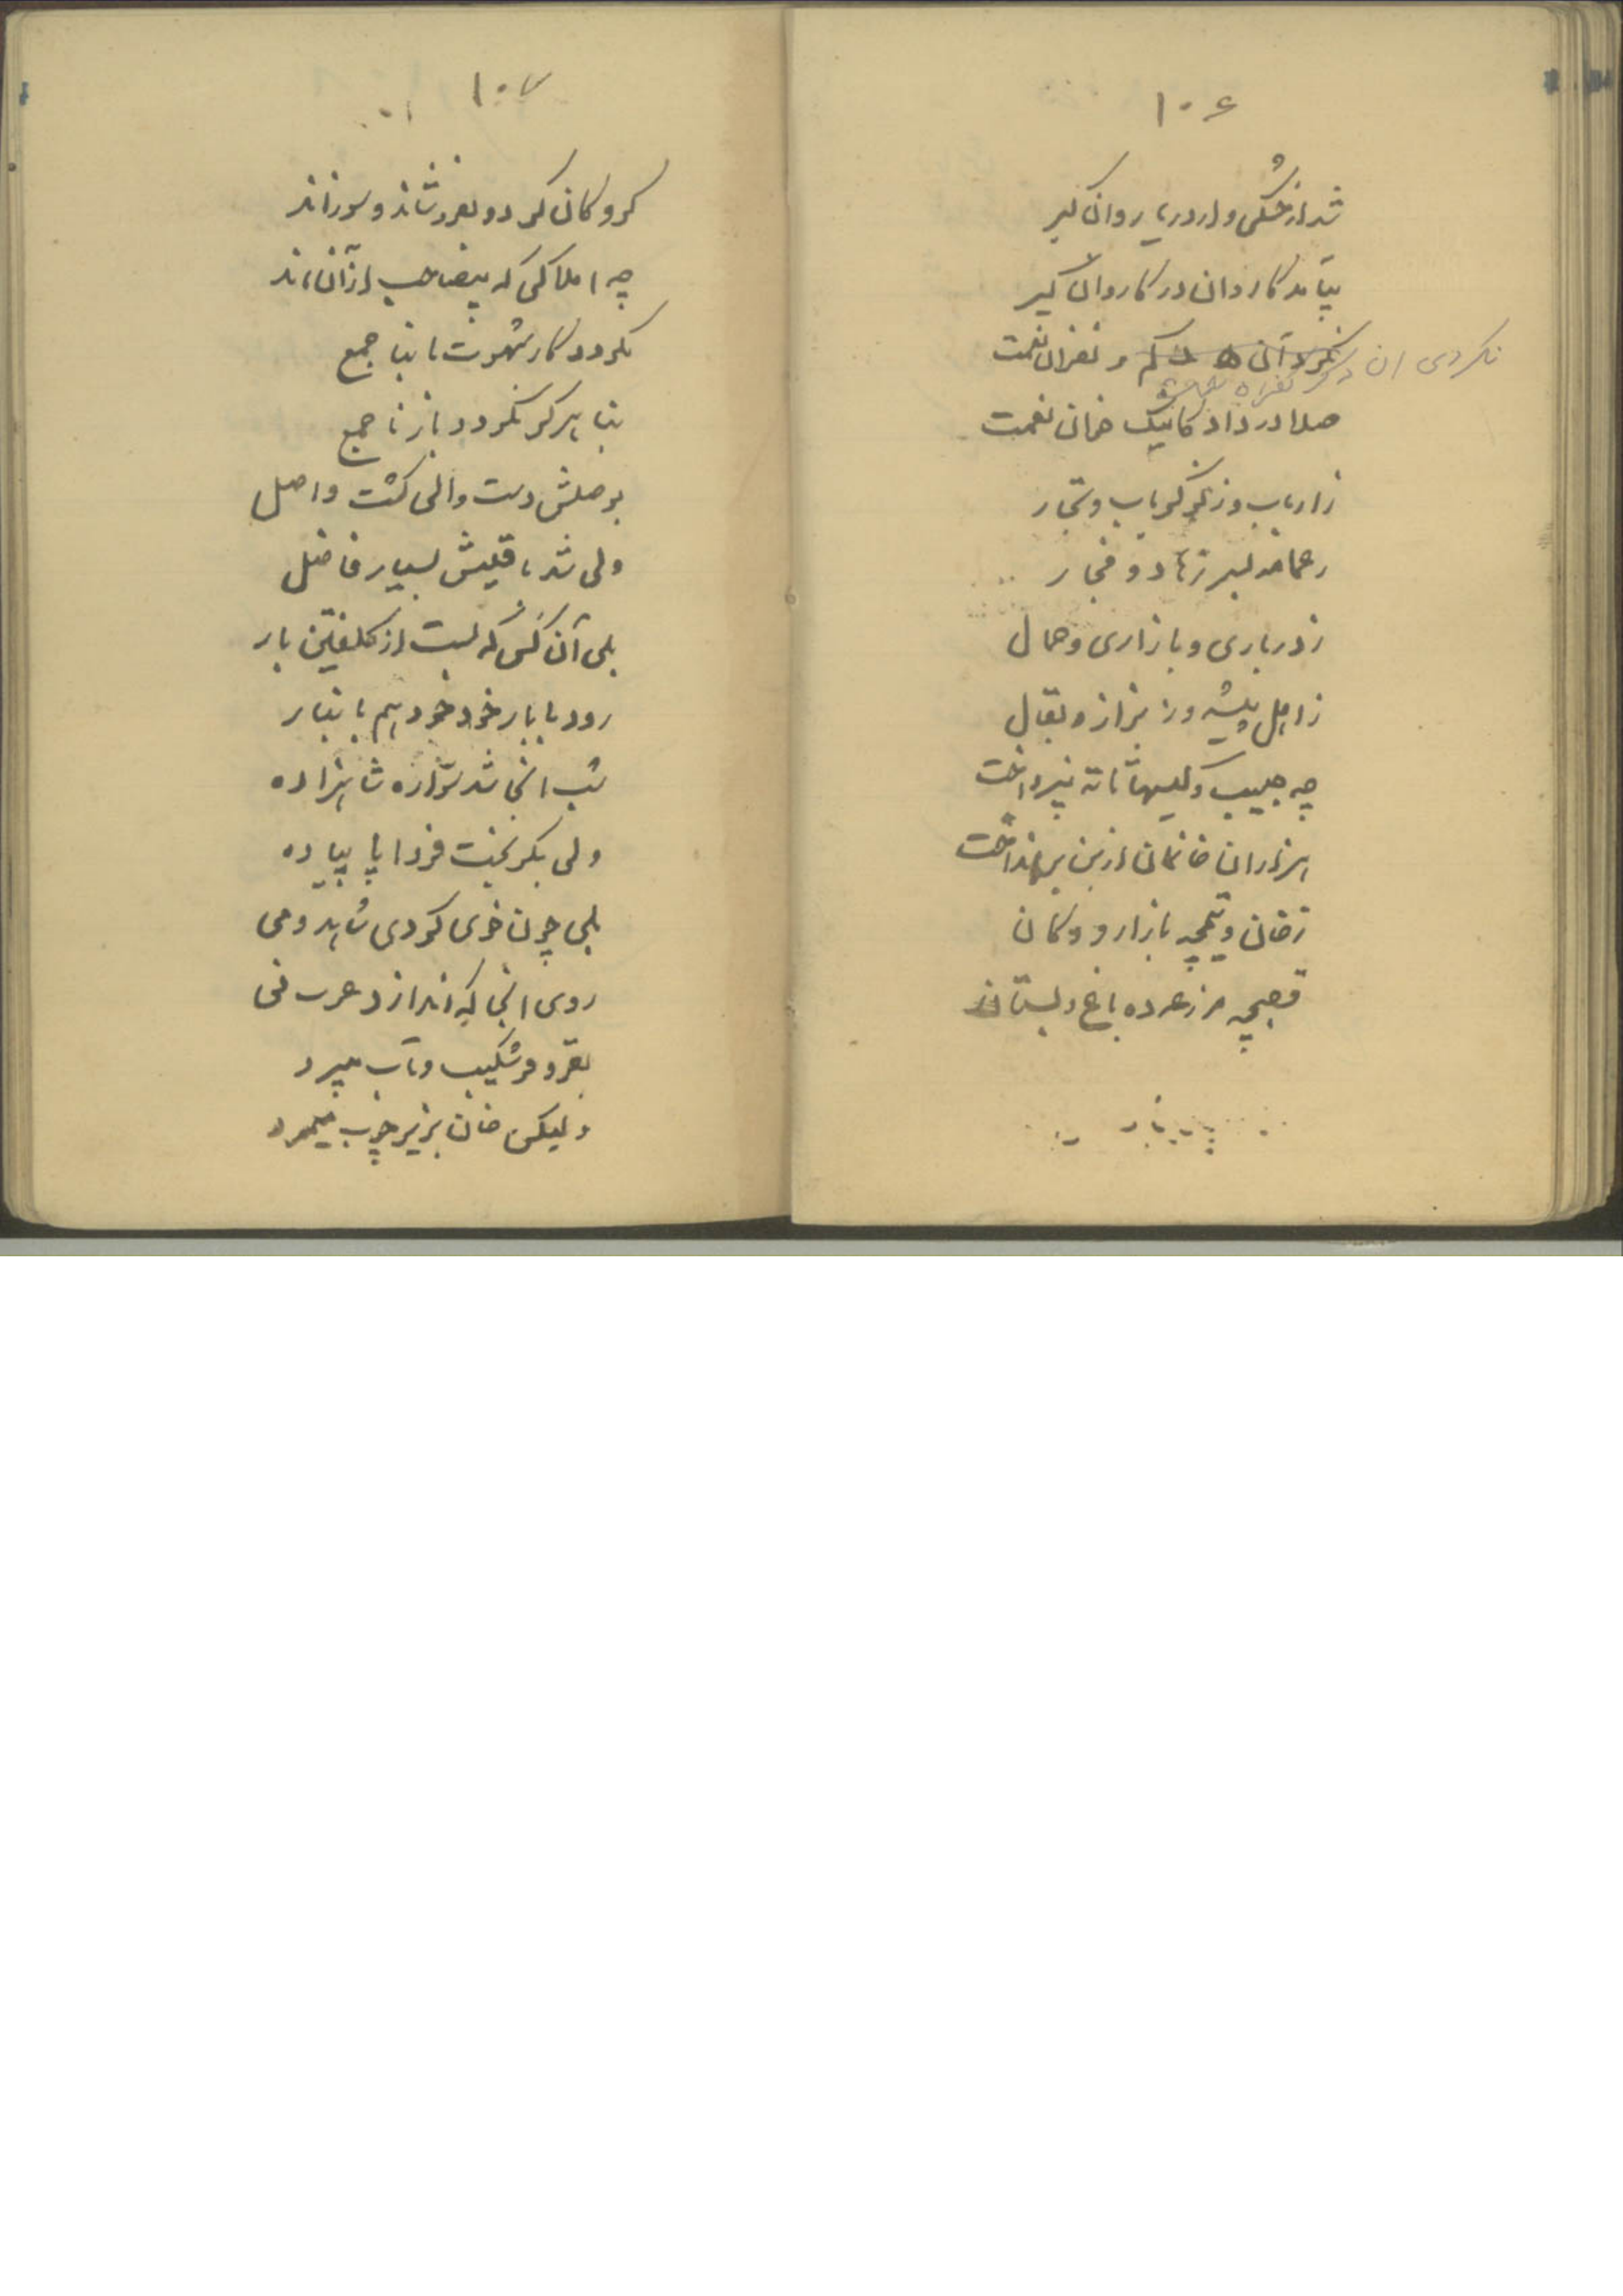 ۱۰۶
شد از خشکی و از دریا روان گیر
بیامد کاروان در کاروان گیر
نکردی ان
نکرد آنی کم و کفران نعمت
صلا در داد کاینک خوان نعمت
ز ارباب و ز نوکر باب و تجار
ز عمامه بسر زهاد و فجار
ز درباری و بازاری و حمال
ز اهل پیشه وز بزاز و بقال
چه جیب و کیسها تا ته بپرداخت
هزاران خانمان از بن برانداخت
ز خان و تیمچه بازار و دکان
قصبچه مزرعه ده باغ و بستان
۱۰۷
گروگان کرد و بفروشاند و سوزاند
چه املاکی که بیصاحب از آن ماند
نگردد کار شهوت با بنا جمع
بنا هرگز نگردد باز نا جمع
بوصلش دست والی گشت واصل
ولی شد باقیش بسیار فاضل
بلی آن کس که بست از کلفتین بار
رود با بار خود خود هم بانبار
شب انجا شد سواره شاهزاده
ولی بگریخت فردا پا پیاده
بلی چون خری کردی شاهد و می
روی انجا که اندازد عرب نی
بقر و فر شکیب و تاب میبرد
ولیکن خان بزیر چوب میمرد